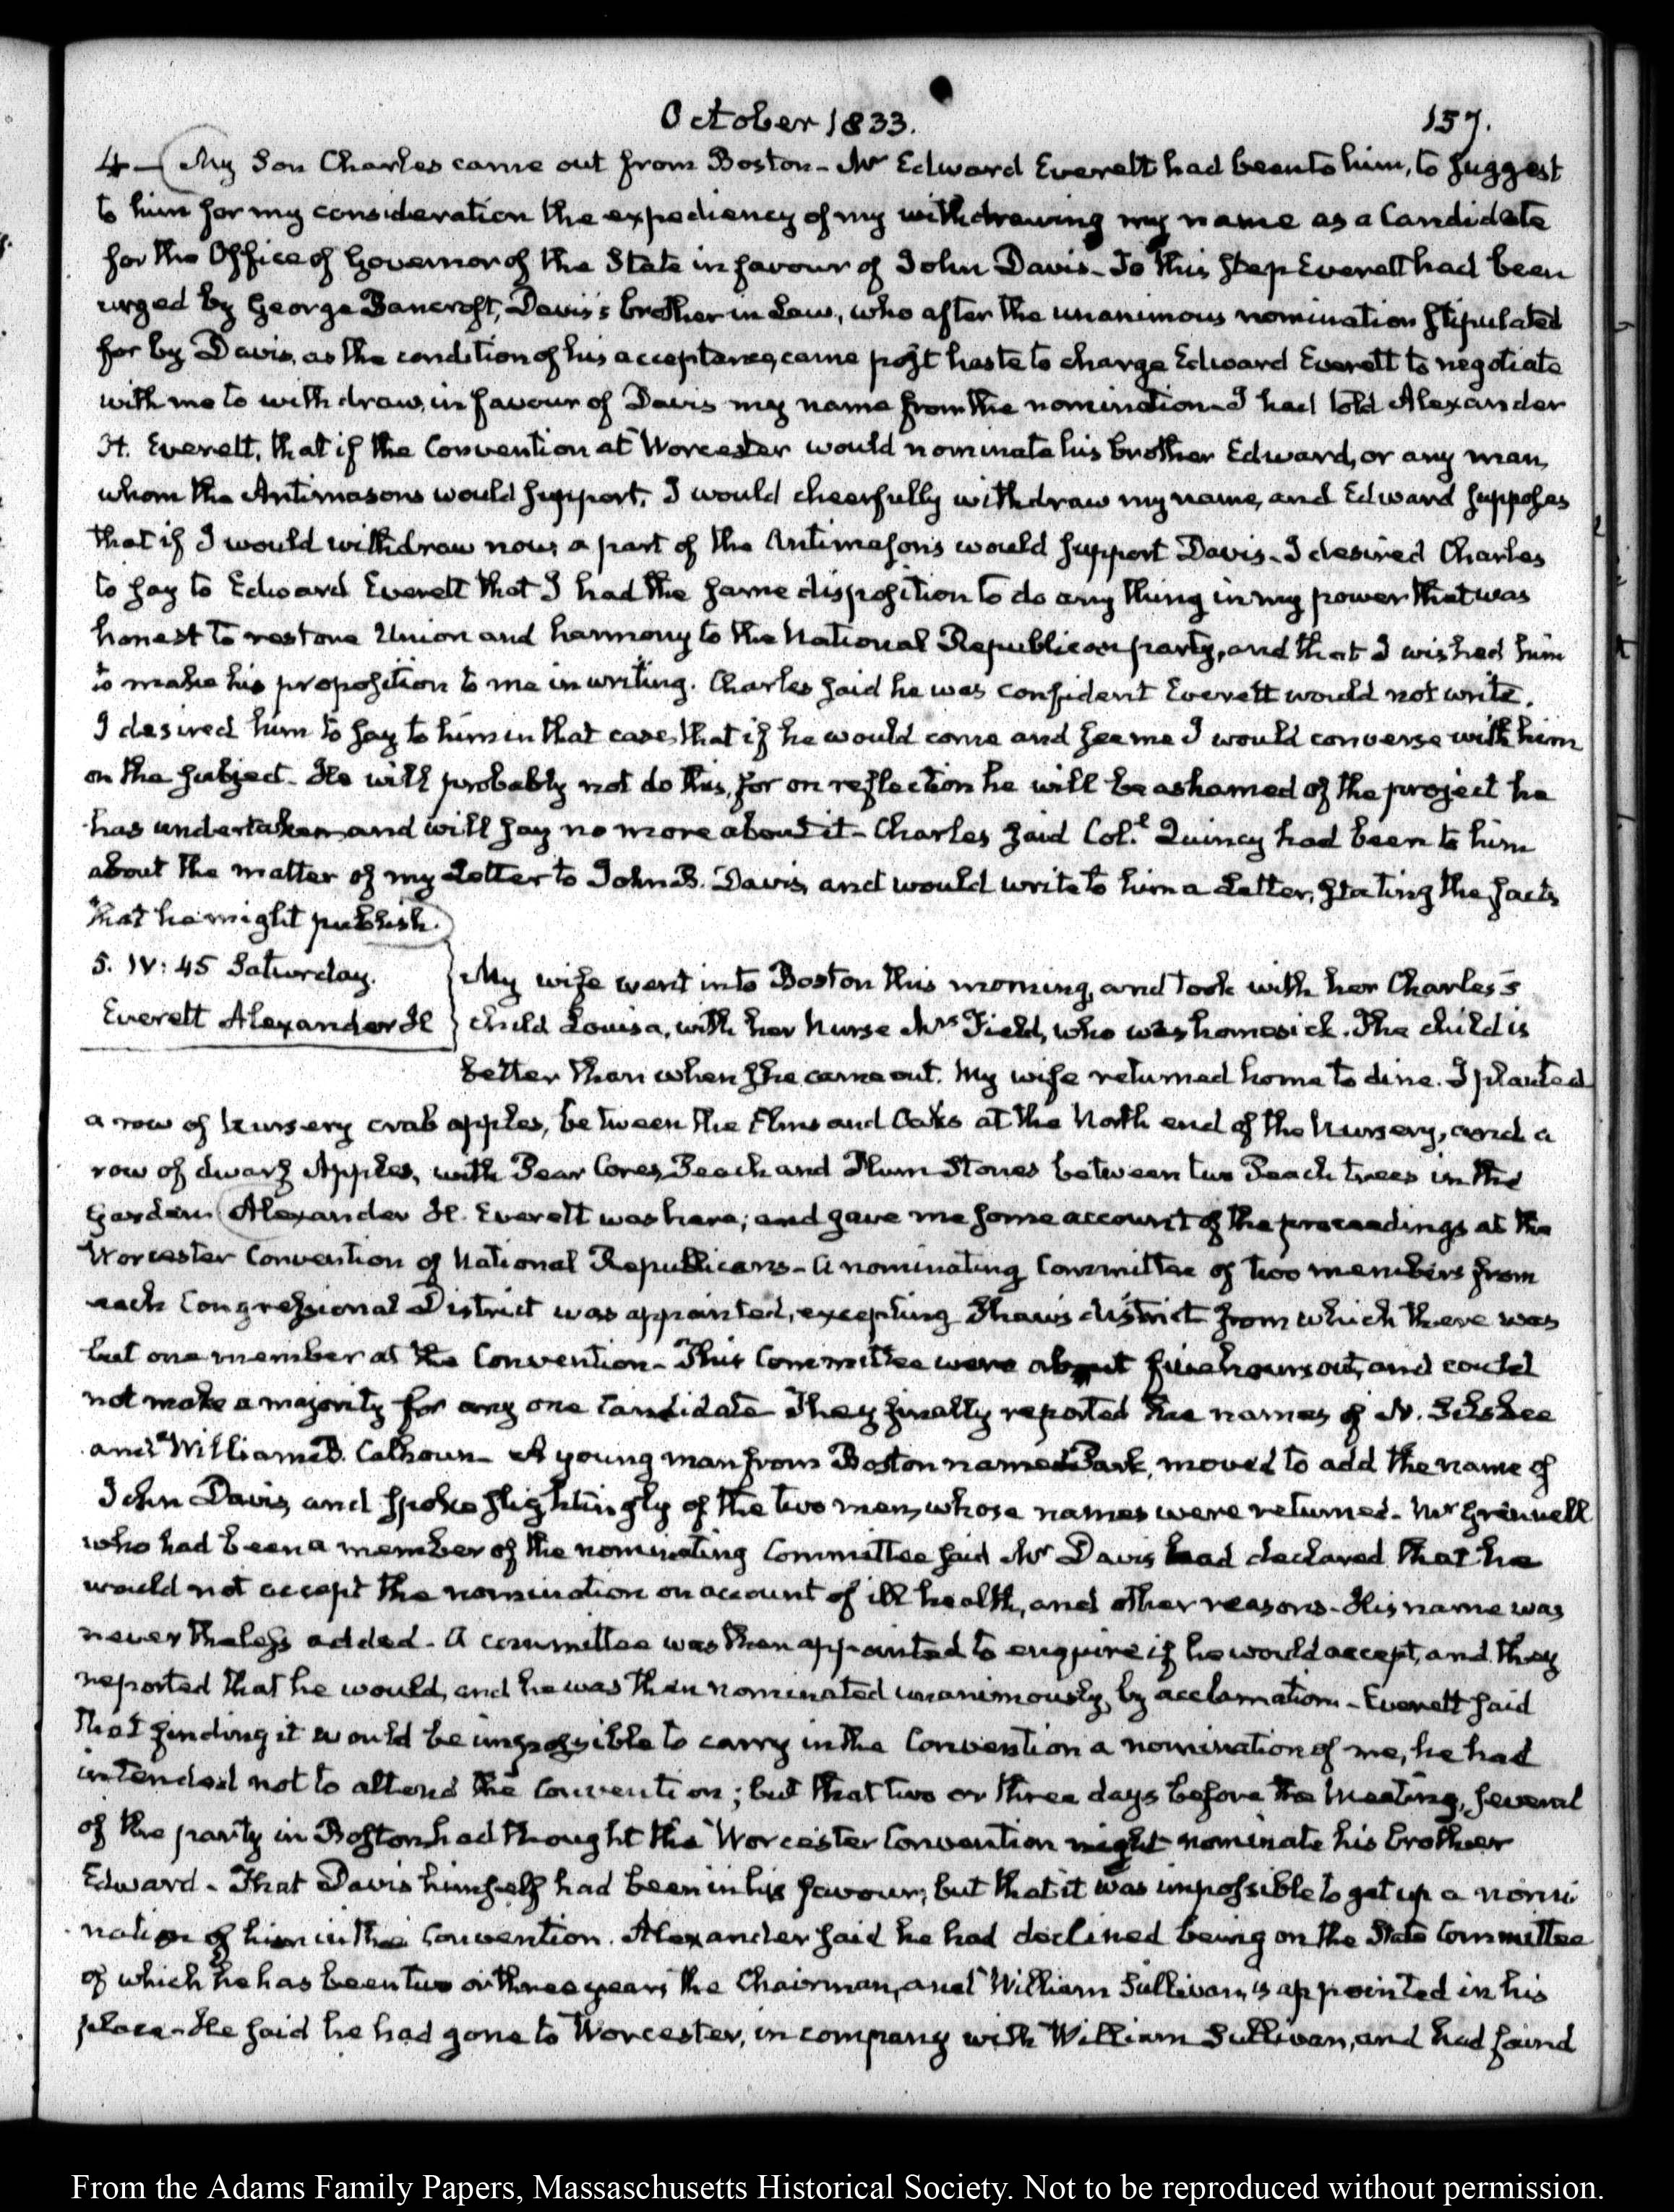 October 1833.
157.
4 – My Son Charles came out from Boston – Mr Edward Everett had been to him, to suggest
to him for my consideration the expediency of my withdrawing my name as a Candidate
for the Office of Governor of the State in favour of John Davis – To this step Everett had been
urged by George Bancroft, Davis's brother in Law, who after the unanimous nomination stipulated
for by Davis, as the condition of his acceptance, came post haste to charge Edward Everett to negotiate
with me to withdraw, in favour of Davis my name from the nomination – I had told Alexander
H. Everett, that if the Convention at Worcester would nominate his brother Edward, or any man,
whom the Antimasons would support, I would cheerfully withdraw my name, and Edward supposes
that if I would withdraw now, a part of the Antimasons would support Davis – I desired Charles
to say to Edward Everett that I had the same disposition to do any thing in my power that was
honest to restore Union and harmony to the National Republican party, and that I wished him
to make his proposition to me in writing. Charles said he was confident Everett would not write.
I desired him to say to him in that case, that if he would come and see me I would converse with him
on the subject – He will probably not do this, for on reflection he will be ashamed of the project he
has undertaken, and will say no more about it – Charles said Col.l Quincy had been to him
about the matter of my Letter to John B. Davis, and would write to him a Letter, stating the facts
that he might publish.
5. IV: 45 Saturday.
Everett Alexander H
My wife went into Boston this morning, and took with her Charles's
child Louisa, with her Nurse Mrs Field, who was homesick. The child is
better than when she came out. My wife returned home to dine. I planted
a row of Nursery crab apples, between the Elms and Oaks at the North end of the Nursery, and a
row of dwarf Apples, with Pear Cores, Peach and Plum Stones between two Peach trees in the
Garden. Alexander H. Everett was here; and gave me some account of the proceedings at the
Worcester Convention of National Republicans – A nominating Committee of two members from
each Congressional District was appointed, excepting Shaw's district from which there was
but one member at the Convention – This Committee were about five hours out, and could
not make a majority for any one Candidate – They finally reported the names of N. Silsbee
and William B. Calhoun – A young man from Boston named Park, moved to add the name of
John Davis, and spoke slightingly of the two men, whose names were returned – Mr Grennell
who had been a member of the nominating Committee said Mr Davis had declared that he
would not accept the nomination on account of ill health, and other reasons – His name was
nevertheless added – A committee was then appointed to enquire if he would accept, and they
reported that he would, and he was then nominated unanimously, by acclamation – Everett said
that finding it would be impossible to carry in the Convention a nomination of me, he had
intended not to attend the Convention; but that two or three days before the Meeting, several
of the party in Boston had thought the Worcester Convention might nominate his brother
Edward – That Davis himself had been in his favour; but that it was impossible to get up a nomi
nation of him in the Convention. Alexander said he had declined being on the State Committee
of which he has been two or three years the Chairman, and William Sullivan, is appointed in his
place – He said he had gone to Worcester, in company with William Sullivan, and had found
From the Adams Family Papers, Massachusetts Historical Society. Not to be reproduced without permission.